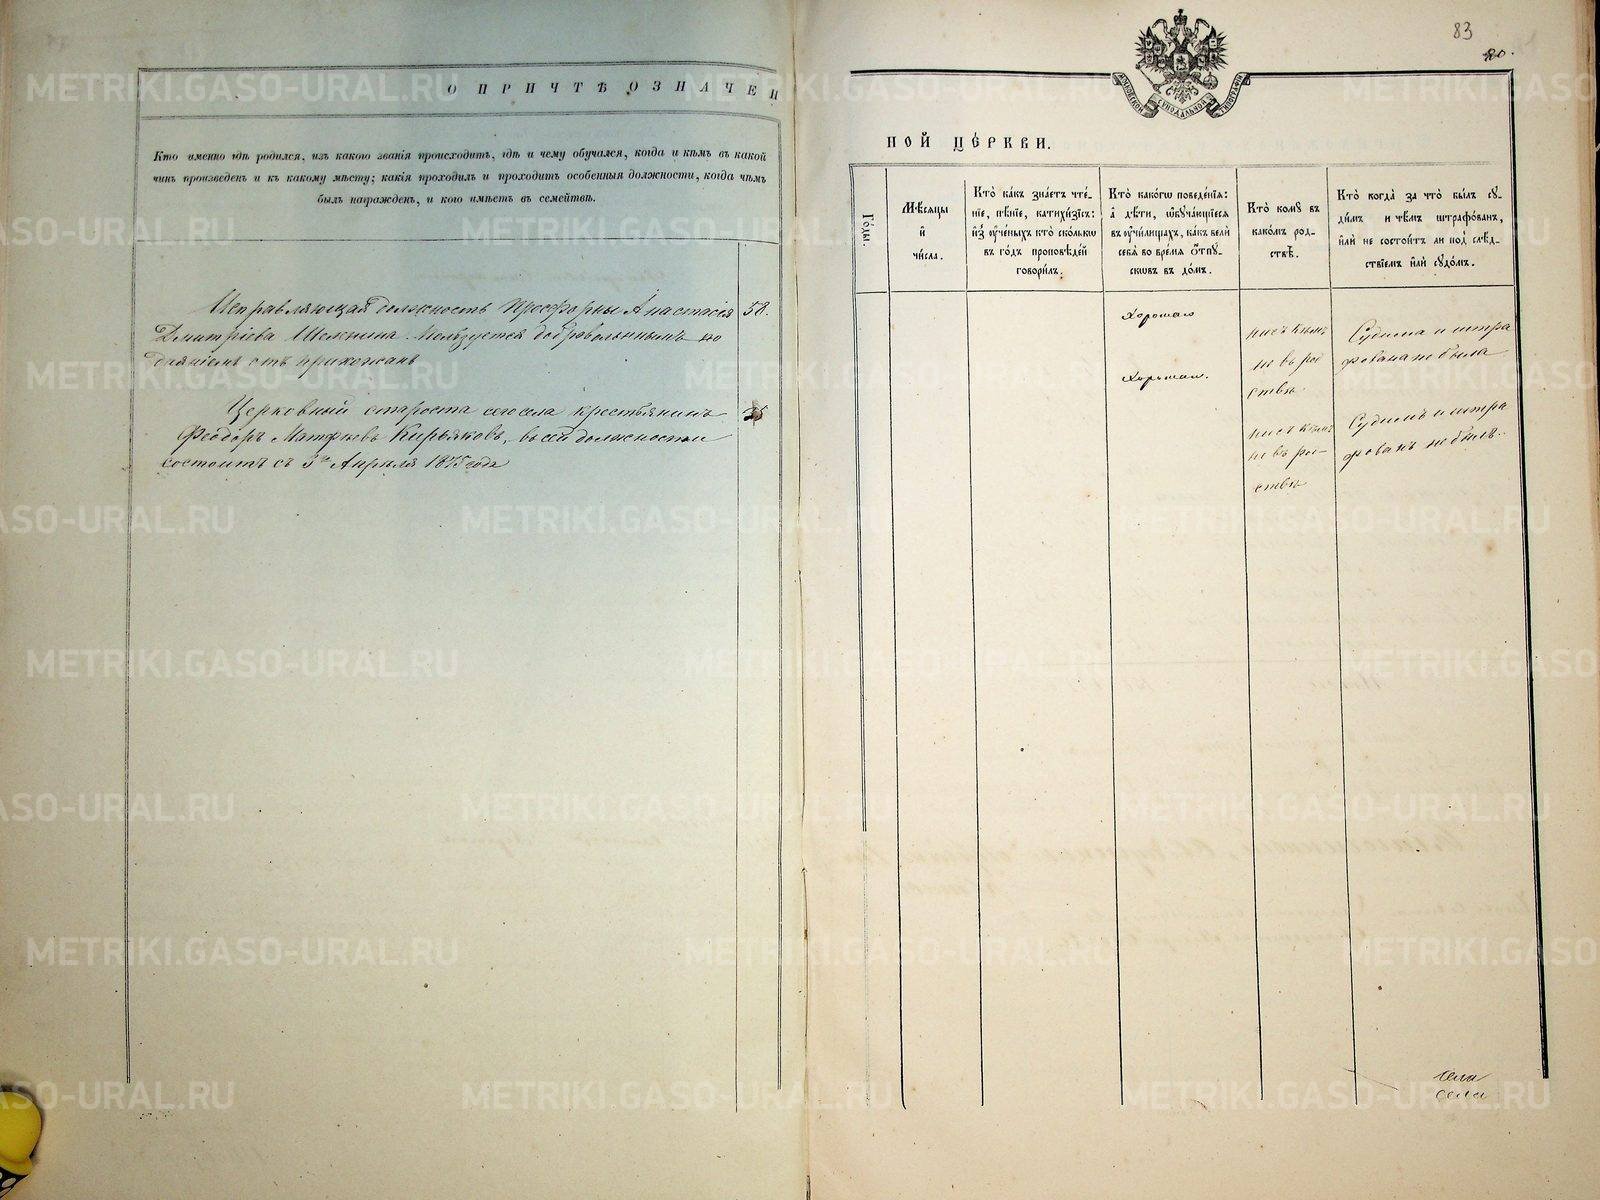 О ПРИЧТѢ ОЗНАЧЕН
Кто именно гдѣ родился, изъ какого званія происходитъ, гдѣ и чему обучался, когда и кѣмъ въ какой
чинъ произведенъ и къ какому мѣсту; какія проходилъ и проходитъ особенныя должности, когда чѣмъ
былъ награжденъ, и кого имѣетъ въ семействѣ.
Исправляющая должность Просфорни Анастасія 58.
Дмитріева. Пользуется добровольнымъ по
даяніемъ отъ прихожанъ
Церковный староста сего села крестьянинъ
Феодоръ Матфѣевъ Кирьяковъ, въ сей должности
состоитъ съ 3го Апрѣля 1875 года
83
80.
МОСКОВСКОЙ СѴНОДАЛЬНОЙ ТИПОГРАФІИ
НОЙ ЦЕ́РКВИ.
Го́ды.
Мѣ́сяцы
и҆
чи́сла.
Кто̀ ка́къ зна́етъ чте́-
нїе, пѣ́нїе, катихи́зїсъ:
и҆з̾ ᲂу҆че́ныхъ кто̀ ско́лькѡ
въ го́дъ проповѣ́дей
говори́лъ.
Кто̀ како́гѡ поведе́нїѧ:
а҆ дѣ́ти, ѡ҆буча́ющїесѧ
въ ᲂу҆чи́лищахъ, ка́къ велѝ
себѧ̀ во вре́мѧ ѿпу-
скѡвъ въ до́мъ.
Кто̀ комꙋ̀ въ
како́мъ род-
ствѣ̀.
Кто̀ когда̀ за что̀ бы́лъ сꙋ-
ди́мъ и҆ чѣ́мъ штрафо́ванъ,
и҆лѝ не состои́тъ ли под̾ слѣ́д-
ствїемъ и҆лѝ сꙋдо́мъ.
Хорошаго
нисъ кѣмъ
не въ род
ствѣ
Судима и штра
фована не была
Хорошаго.
нисъ кѣмъ
не въ ро-
ствѣ
Судимъ и штра
фованъ не былъ.
села
села
METRIKI.GASO-URAL.RU